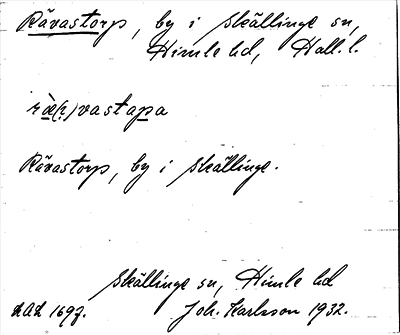 Rävastorp, by i Skällinge sn,
Himle hd, Hall. l.
Rävastorp, by i Skällinge.
Skällinge sn, Himle hd
Joh. Karlsson 1932.